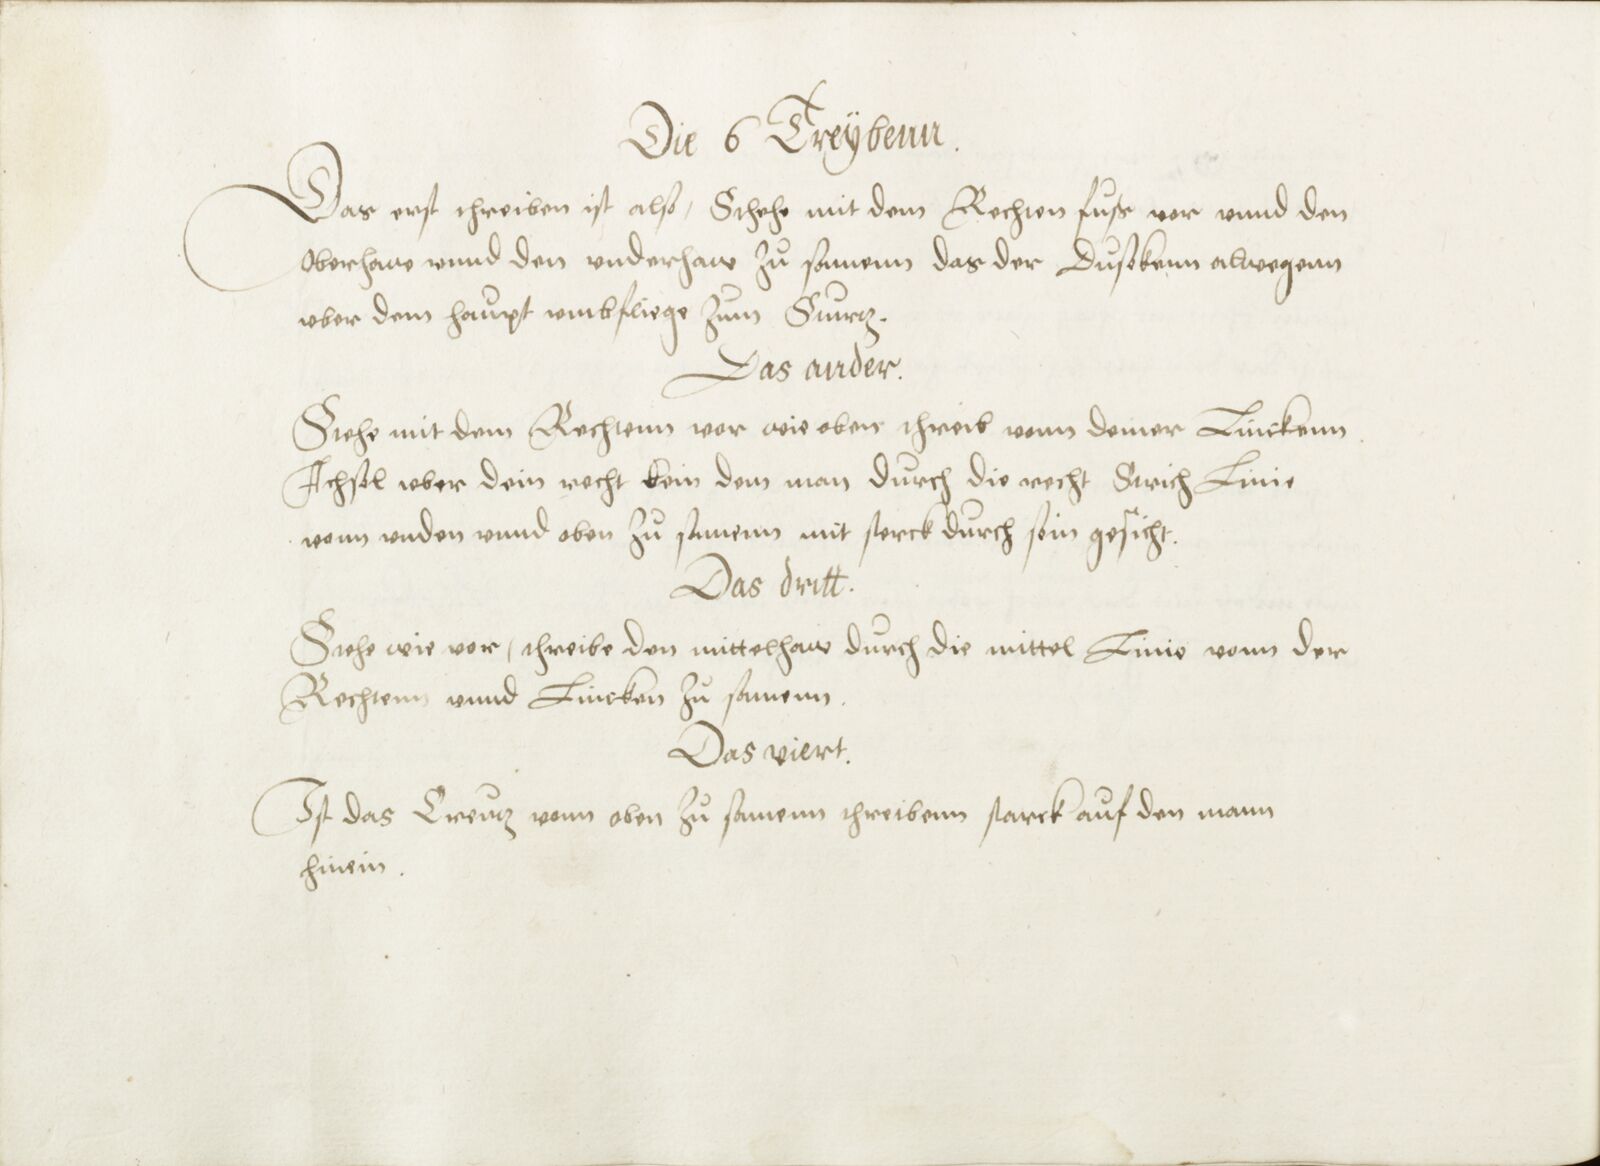 Die 6 Treÿbenn.
Das erst threiben ist also, Stehe mit dem Rechten fuss vor vnnd den
Oberhaw vnnd den vnderhaw zu samenn das der Dusekenn alwegenn
vber dem haupt vmbfliege zum Sturtz.
Das ander.
Stehe mit dem Rechtenn vor wie oben threib vonn deiner Linckenn
Achsel vber dein recht kein dem man durch die recht Strich Linie
vonn vnden vnnd oben zu samenn mit sterck durch sein gesicht.
Das dritt.
Stehe wie vor, threibe den mittelhaw durch die mittel Linie vonn der
Rechtenn vnnd Lincken zu samenn.
Das viert.
Ist das Creutz vonn oben zu samenn threibenn starck auf den mann
hinein.